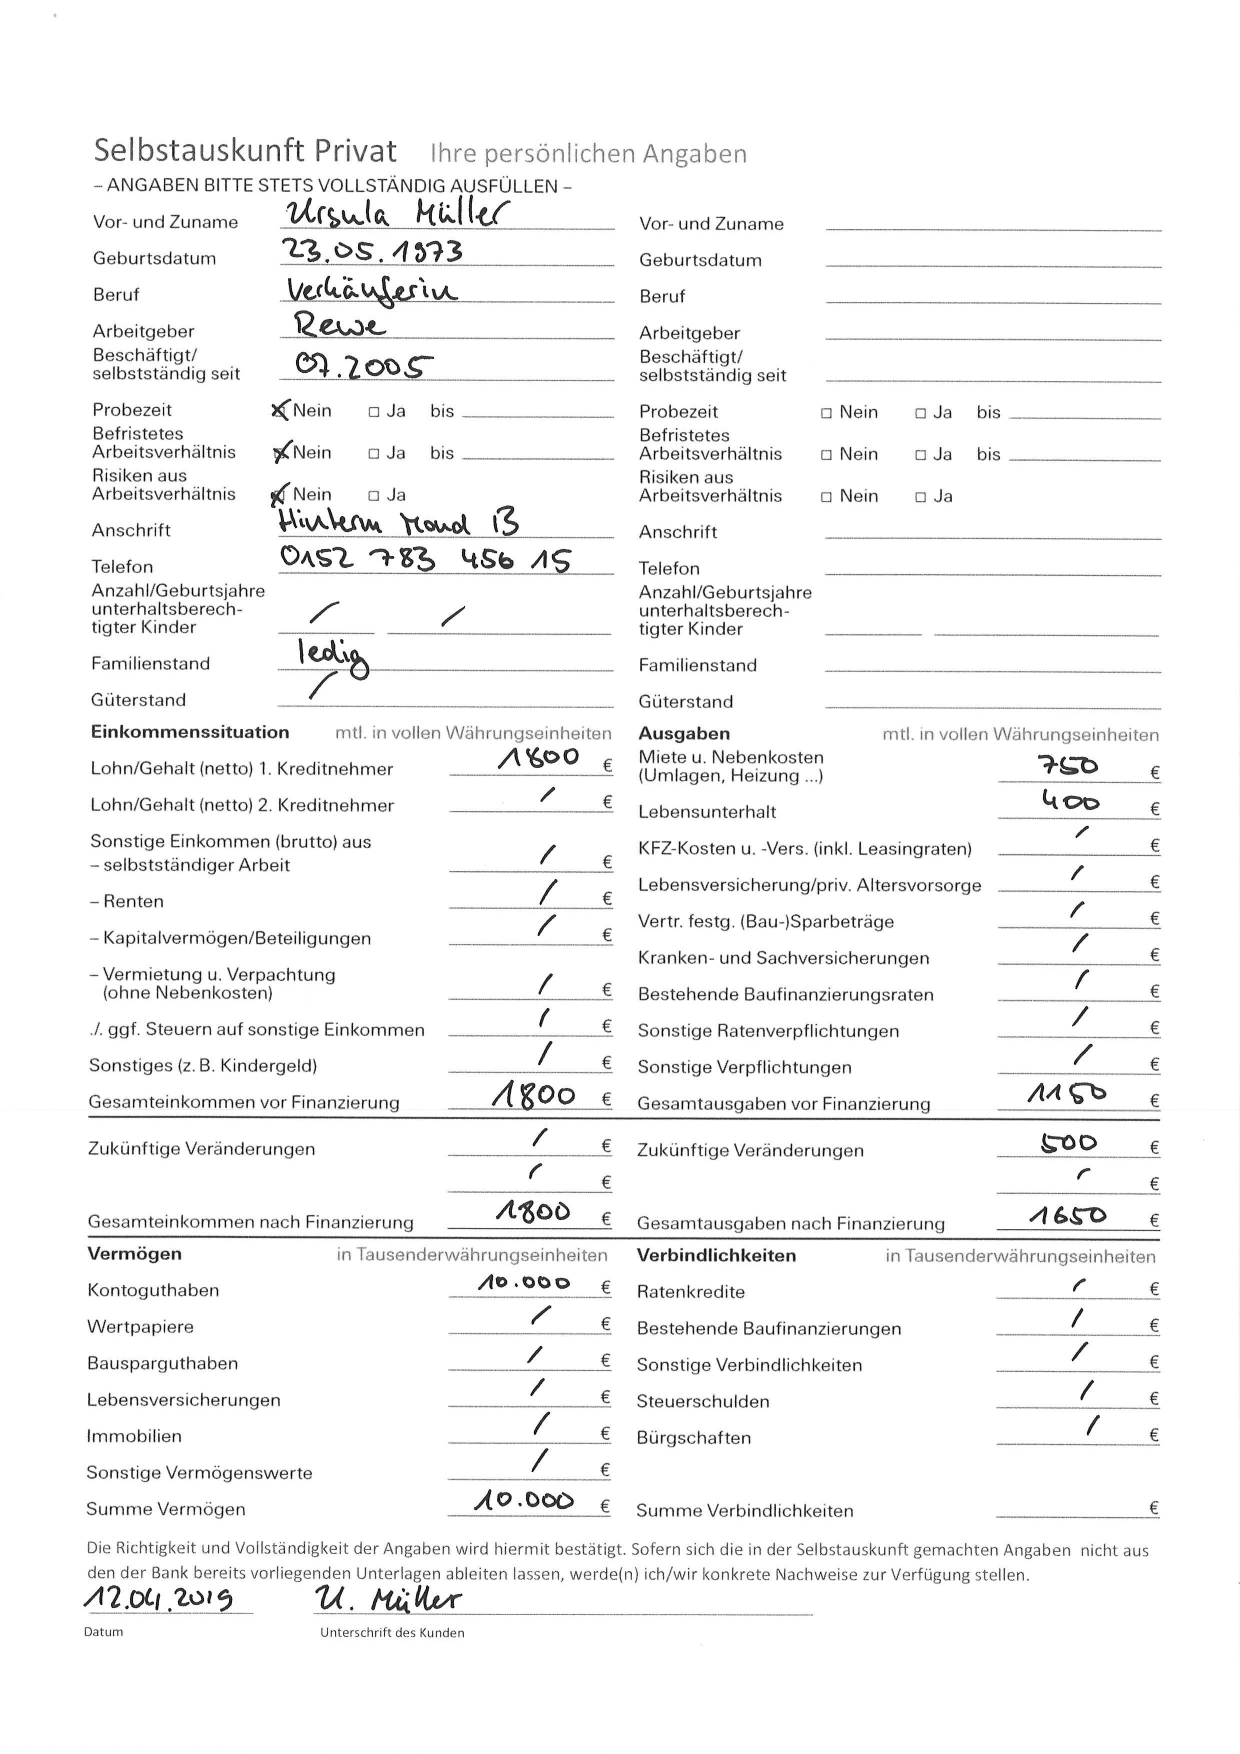 Selbstauskunft Privat Ihre persönlichen Angaben
– ANGABEN BITTE STETS VOLLSTÄNDIG AUSFÜLLEN –
Vor- und Zuname Ursula Müller
Geburtsdatum 23.05.1973
Beruf Verkäuferin
Arbeitgeber Rewe
Beschäftigt/
selbstständig seit 07.2005
Probezeit ☒ Nein □ Ja bis
Befristetes
Arbeitsverhältnis ☒ Nein □ Ja bis
Risiken aus
Arbeitsverhältnis ☒ Nein □ Ja
Anschrift Hinterm Mond 13
Telefon 0152 783 456 15
Anzahl/Geburtsjahre
unterhaltsberech-
tigter Kinder / /
Familienstand ledig
Güterstand /
Vor- und Zuname
Geburtsdatum
Beruf
Arbeitgeber
Beschäftigt/
selbstständig seit
Probezeit □ Nein □ Ja bis
Befristetes
Arbeitsverhältnis □ Nein □ Ja bis
Risiken aus
Arbeitsverhältnis □ Nein □ Ja
Anschrift
Telefon
Anzahl/Geburtsjahre
unterhaltsberech-
tigter Kinder
Familienstand
Güterstand
Einkommenssituation mtl. in vollen Währungseinheiten
Lohn/Gehalt (netto) 1. Kreditnehmer 1800 €
Lohn/Gehalt (netto) 2. Kreditnehmer / €
Sonstige Einkommen (brutto) aus
– selbstständiger Arbeit / €
– Renten / €
– Kapitalvermögen/Beteiligungen / €
– Vermietung u. Verpachtung
(ohne Nebenkosten) / €
./. ggf. Steuern auf sonstige Einkommen / €
Sonstiges (z. B. Kindergeld) / €
Gesamteinkommen vor Finanzierung 1800 €
Zukünftige Veränderungen / €
/ €
Gesamteinkommen nach Finanzierung 1800 €
Ausgaben mtl. in vollen Währungseinheiten
Miete u. Nebenkosten
(Umlagen, Heizung ...) 750 €
Lebensunterhalt 400 €
KFZ-Kosten u. -Vers. (inkl. Leasingraten) / €
Lebensversicherung/priv. Altersvorsorge / €
Vertr. festg. (Bau-)Sparbeträge / €
Kranken- und Sachversicherungen / €
Bestehende Baufinanzierungsraten / €
Sonstige Ratenverpflichtungen / €
Sonstige Verpflichtungen / €
Gesamtausgaben vor Finanzierung 1150 €
Zukünftige Veränderungen 500 €
/ €
Gesamtausgaben nach Finanzierung 1650 €
Vermögen in Tausenderwährungseinheiten
Kontoguthaben 10.000 €
Wertpapiere / €
Bausparguthaben / €
Lebensversicherungen / €
Immobilien / €
Sonstige Vermögenswerte / €
Summe Vermögen 10.000 €
Verbindlichkeiten in Tausenderwährungseinheiten
Ratenkredite / €
Bestehende Baufinanzierungen / €
Sonstige Verbindlichkeiten / €
Steuerschulden / €
Bürgschaften / €
Summe Verbindlichkeiten €
Die Richtigkeit und Vollständigkeit der Angaben wird hiermit bestätigt. Sofern sich die in der Selbstauskunft gemachten Angaben nicht aus
den der Bank bereits vorliegenden Unterlagen ableiten lassen, werde(n) ich/wir konkrete Nachweise zur Verfügung stellen.
12.04.2019 U. Müller
Datum Unterschrift des Kunden